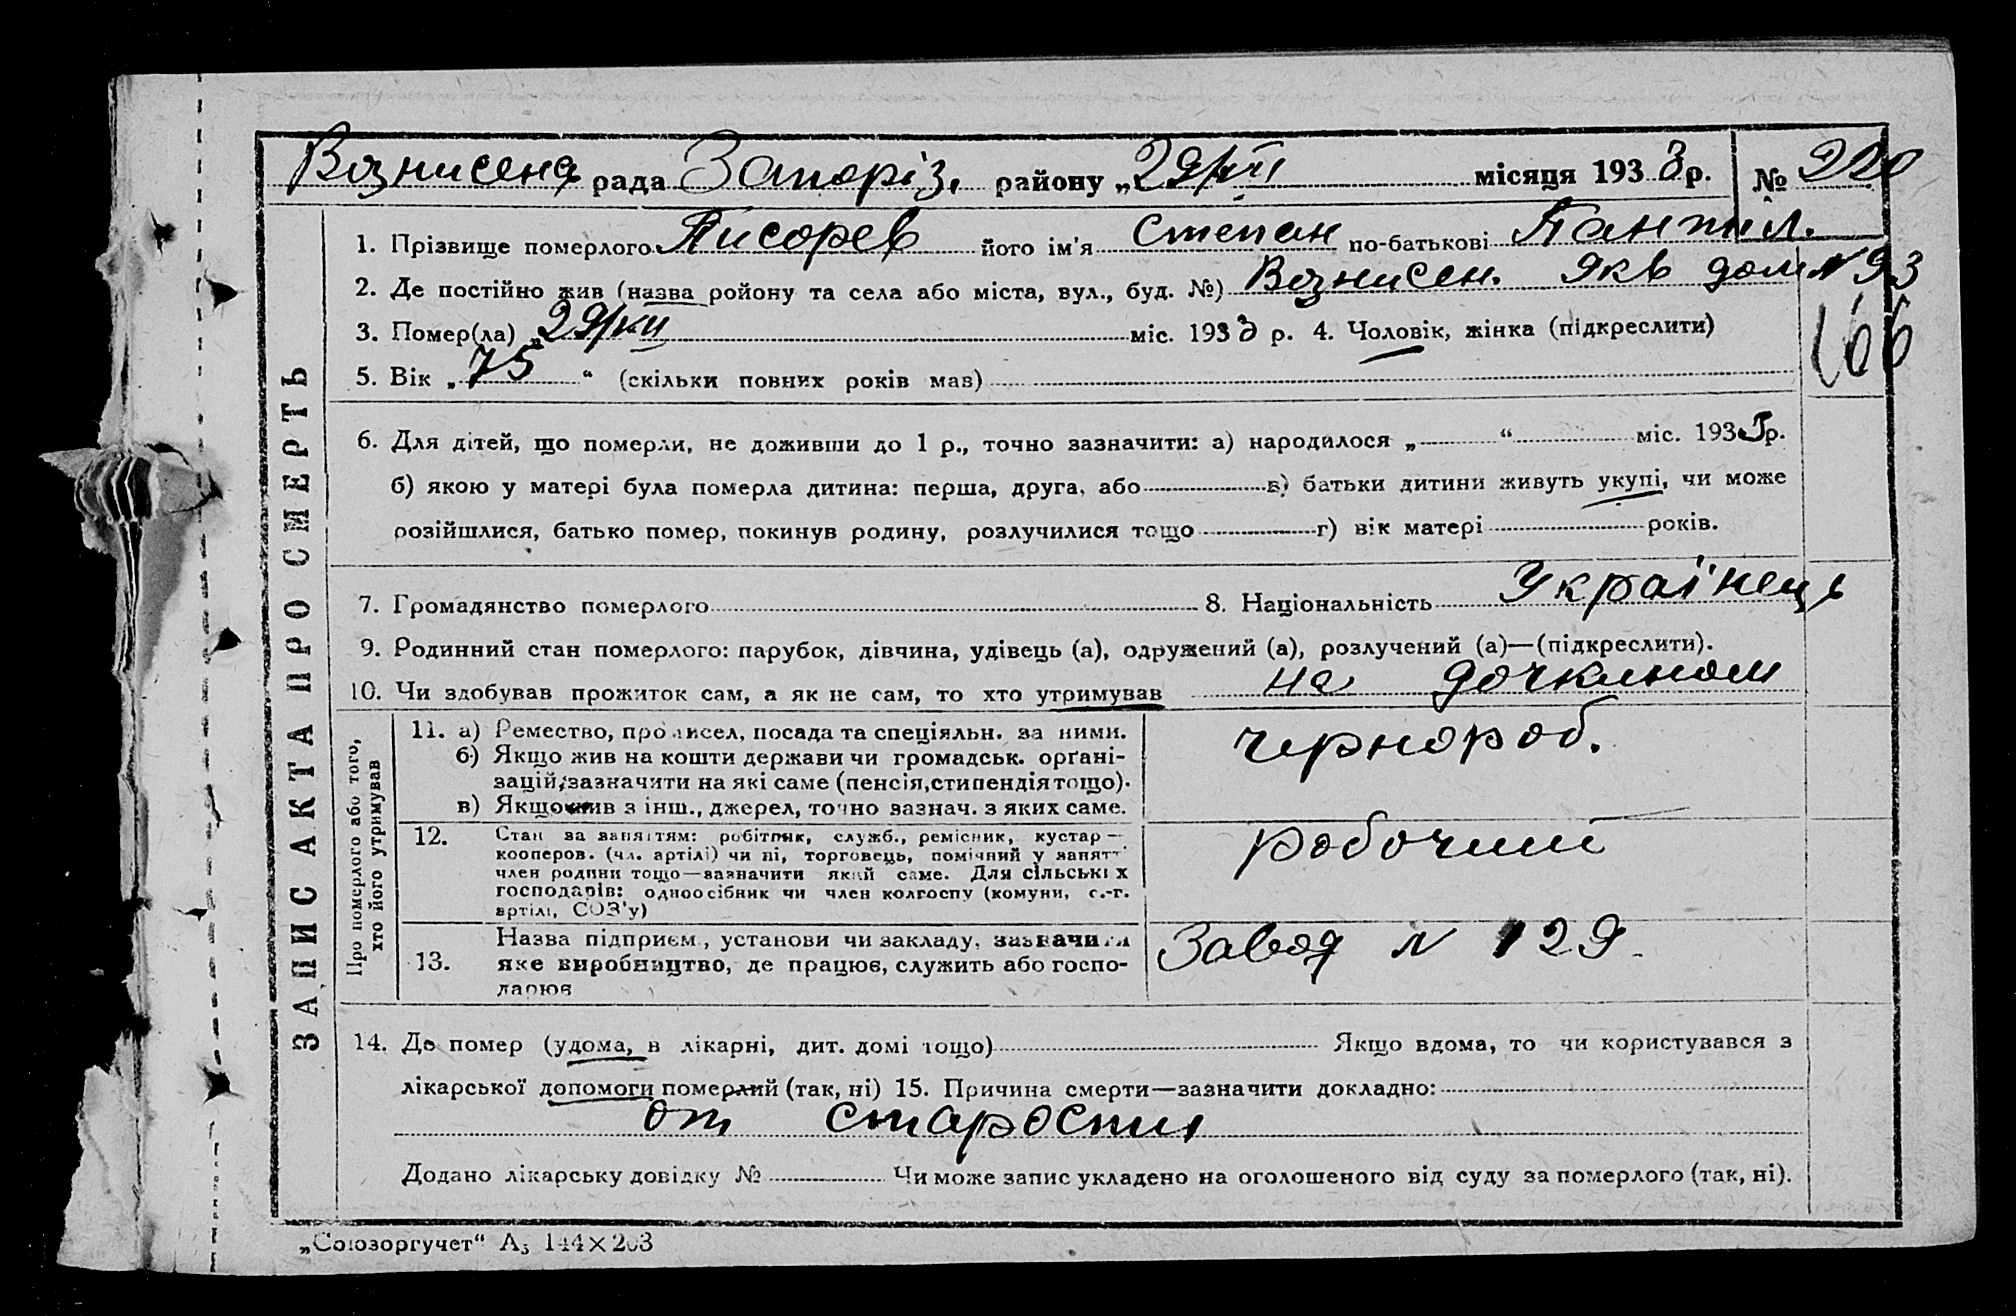 Вознисенд рада Запоріз. району „29/XII місяця 1933 р. № 220
1. Прізвище померлого Писорев його ім'я Степан по-батькові Пантил.
2. Де постійно жив (назва ройону та села або міста, вул., буд. №) Вознисен. Якв дом N 93
3. Помер(ла) „29/XII міс. 1933 р. 4. Чоловік, жінка (підкреслити)
166
5. Вік „75“ (скільки повних років мав)
6. Для дітей, що померли, не доживши до 1 р., точно зазначити: а) народилося „ “ міс. 193 р.
б) якою у матері була померла дитина: перша, друга, або в) батьки дитини живуть укупі, чи може
розійшлися, батько помер, покинув родину, розлучилися тощо г) вік матері років.
7. Громадянство померлого 8. Національність Українець
9. Родинний стан померлого: парубок, дівчина, удівець (а), одружений (а), розлучений (а)—(підкреслити).
10. Чи здобував прожиток сам, а як не сам, то хто утримував на дочкином
ЗАПИС АКТА ПРО СМЕРТЬ
Про померлого або того,
хто його утримував
11. а) Ремество, промисел, посада та спеціяльн. за ними.
б) Якщо жив на кошти держави чи громадськ. орґані-
зацій, зазначити на які саме (пенсія, стипендія тощо).
в) Якщо жив з інш., джерел, точно зазнач. з яких саме.
чернороб.
12. Стан за заняттям: робітник, служб., ремісник, кустар—
кооперов. (чл. артілі) чи ні, торговець, помічний у занятт
член родини тощо—зазначити який саме. Для сільських
господарів: одноосібник чи член колгоспу (комуни, с.-г.
артілі, СОЗ'у)
робочий
13. Назва підприєм., установи чи закладу, зазначити
яке виробництво, де працює, служить або госпо-
дарює
Завод N 129
14. Де помер (удома, в лікарні, дит. домі тощо) Якщо вдома, то чи користувався з
лікарської допомоги померлий (так, ні) 15. Причина смерти—зазначити докладно:
от старости
Додано лікарську довідку № Чи може запис укладено на оголошеного від суду за померлого (так, ні).
„Союзоргучет“ А₅ 144×203